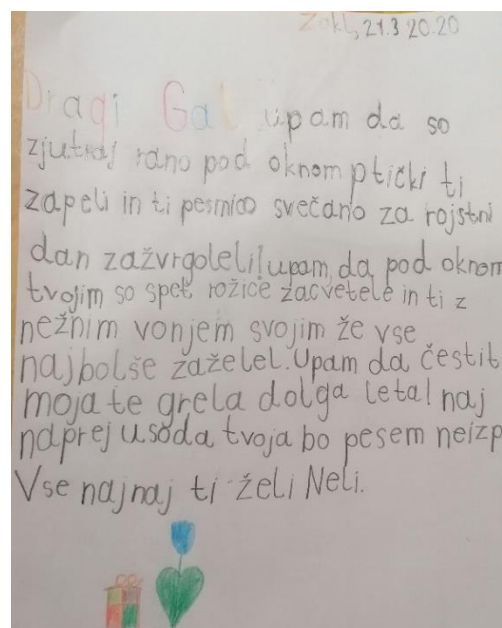 Zakl, 21.3 20.20
Dragi Gal upam da so
zjutraj rano pod oknom ptički ti
zapeli in ti pesmico svečano za rojstni
dan zažvrgoleli! upam, da pod oknom
tvojim so spet rožice zacvetele in ti z
nežnim vonjem svojim že vse
najbolše zaželel. Upam da čestit
moja te grela dolga leta! naj
naprej usoda tvoja bo pesem neizp
Vse najnaj ti želi Neli.